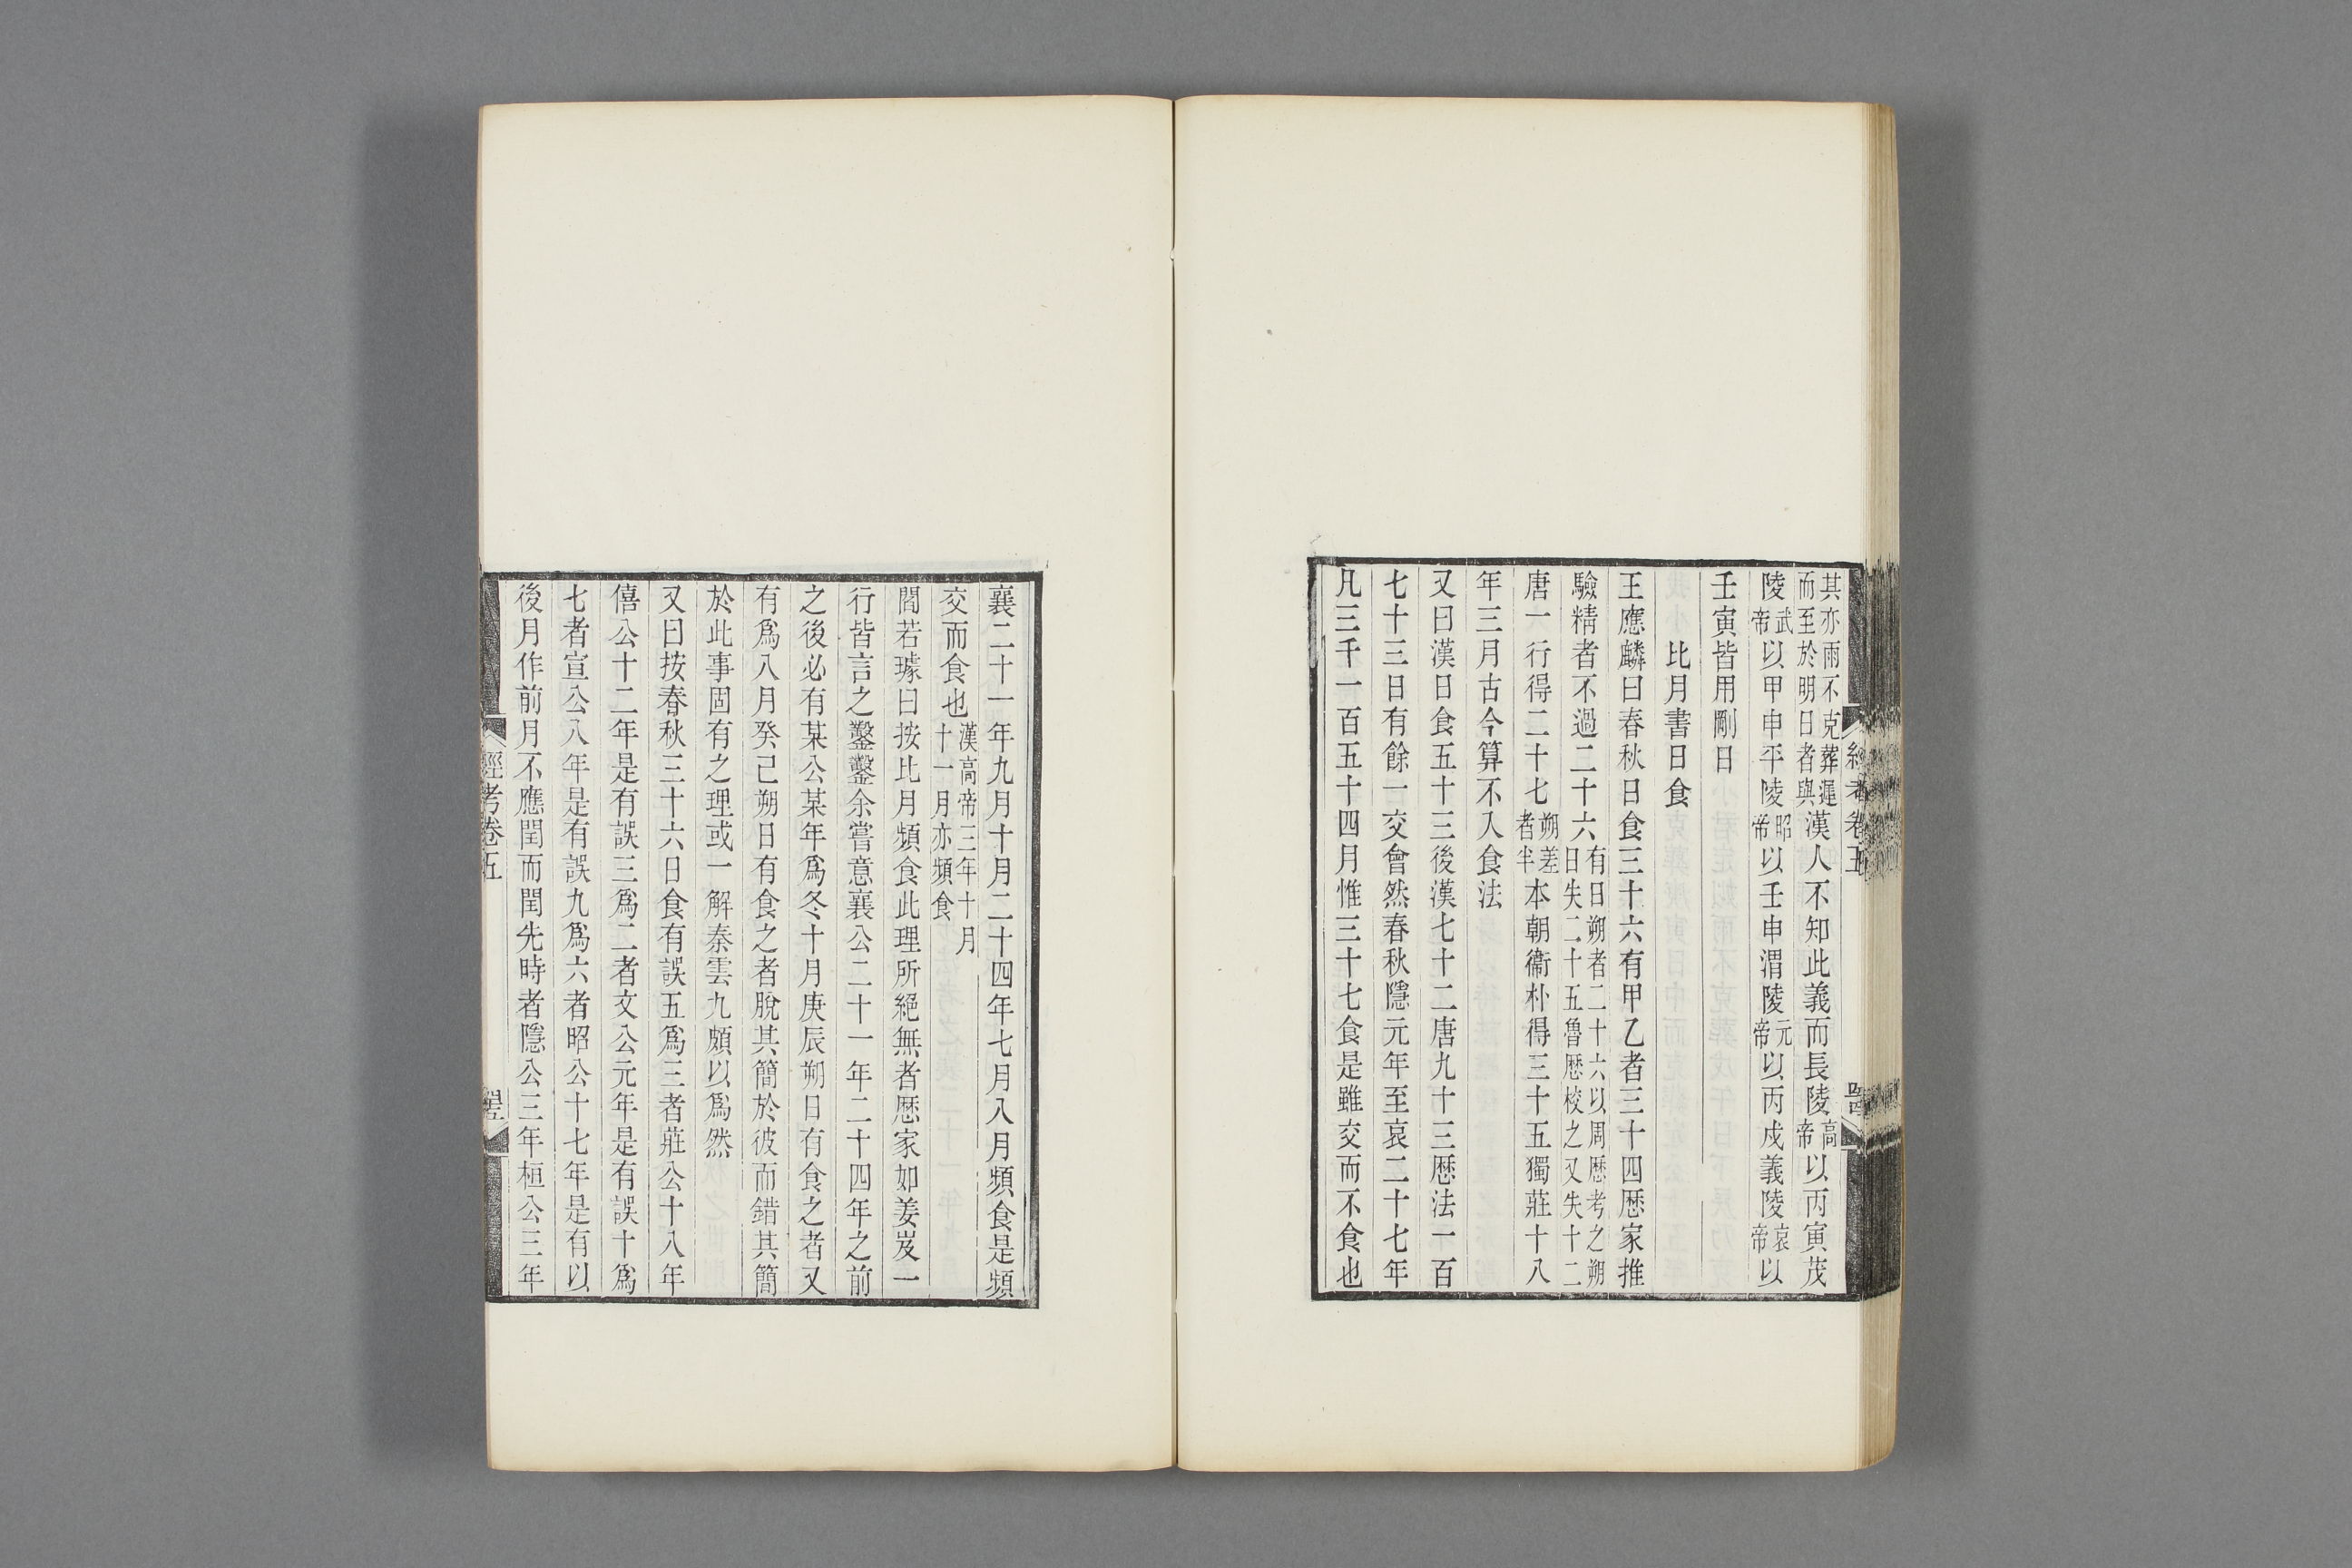 其亦雨不克葬遲
而至於明日者與漢人不知此義而長陵高帝以丙寅茂
陵武帝以甲申平陵昭帝以壬申渭陵元帝以丙戍義陵哀帝以
壬寅皆用剛日
比月書日食
王應麟曰春秋日食三十六有甲乙者三十四歷家推
驗精者不過二十六有日朔者二十六以周歷考之朔日失二十五魯歷校之又失十二
唐一行得二十七朔差者半本朝衞朴得三十五獨莊十八
年三月古今算不入食法
又曰漢日食五十三後漢七十二唐九十三歷法一百
七十三日有餘一交會然春秋隱元年至哀二十七年
凡三千一百五十四月惟三十七食是雖交而不食也
經考卷五
襄二十一年九月十月二十四年七月八月頻食是頻
交而食也漢高帝三年十月十一月亦頻食
閻若璩曰按比月頻食此理所絕無者歷家如姜岌一
行皆言之鑿鑿余嘗意襄公二十一年二十四年之前
之後必有某公某年爲冬十月庚辰朔日有食之者又
有爲八月癸己朔日有食之者脫其簡於彼而錯其簡
於此事固有之理或一解秦雲九頗以爲然
又曰按春秋三十六日食有誤五爲三者莊公十八年
僖公十二年是有誤三爲二者文公元年是有誤十爲
七者宣公八年是有誤九爲六者昭公十七年是有以
後月作前月不應閏而閏先時者隱公三年桓公三年
經考卷五